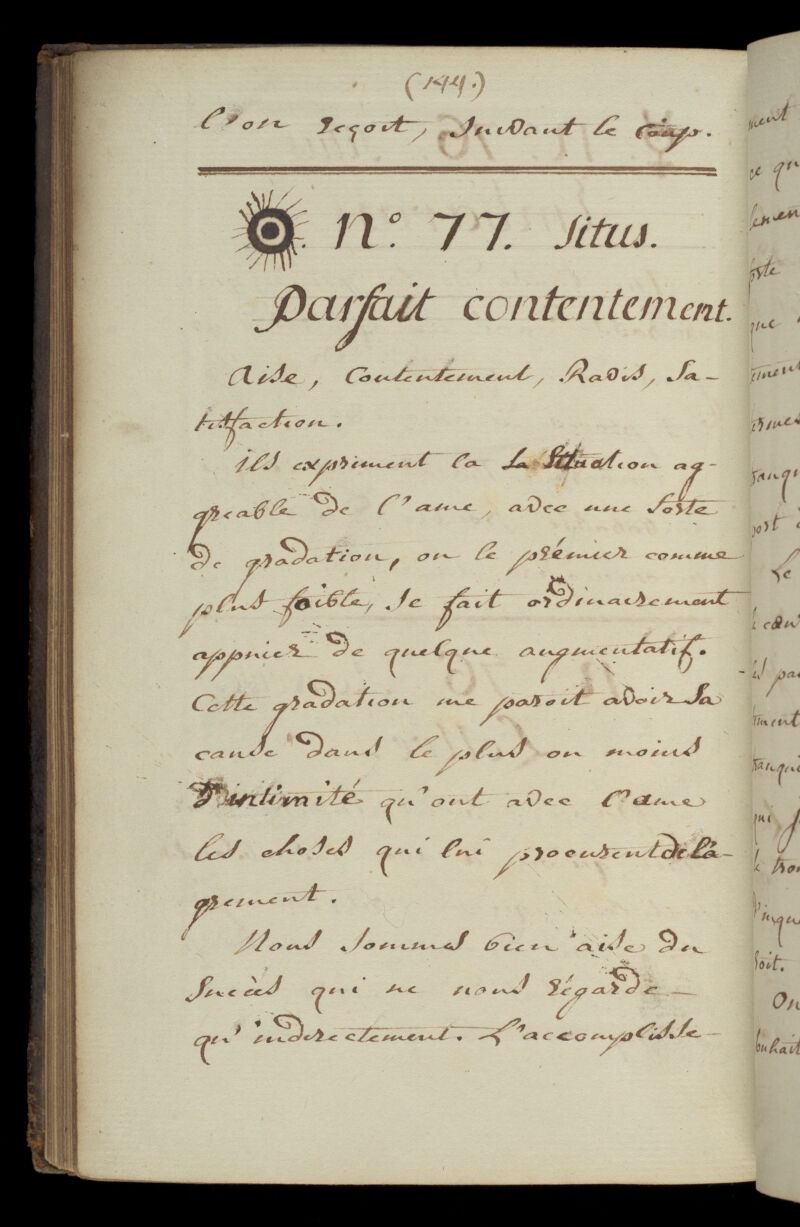 (144.)
l'on reçoit, suivant le coup.
N.° 77. Situs.
Parfait contentement.
Aise, Contentement, Ravis, Sa-
tisfaction.
Ils expriment la La Situation ag-
greable de l'ame, avec une sorte
de gradation, ou le prémier comme
plus foible, se fait ordinairement
appuier de quelque augmentatif.
Cette gradation me paroit avoir sa
cause dans le plus ou moins
d'intimité qu'ont avec l'ame
les choses qui lui procurent de l'a-
grement.
Nous sommes bien aise du
Succès qui ne nous régarde
qu'indirectement. L'accomplisse-
ment
ce qu
lemen
que
ement
Le
l cœu
tranqui
qui
d'inqu
soit.
On
ouhait